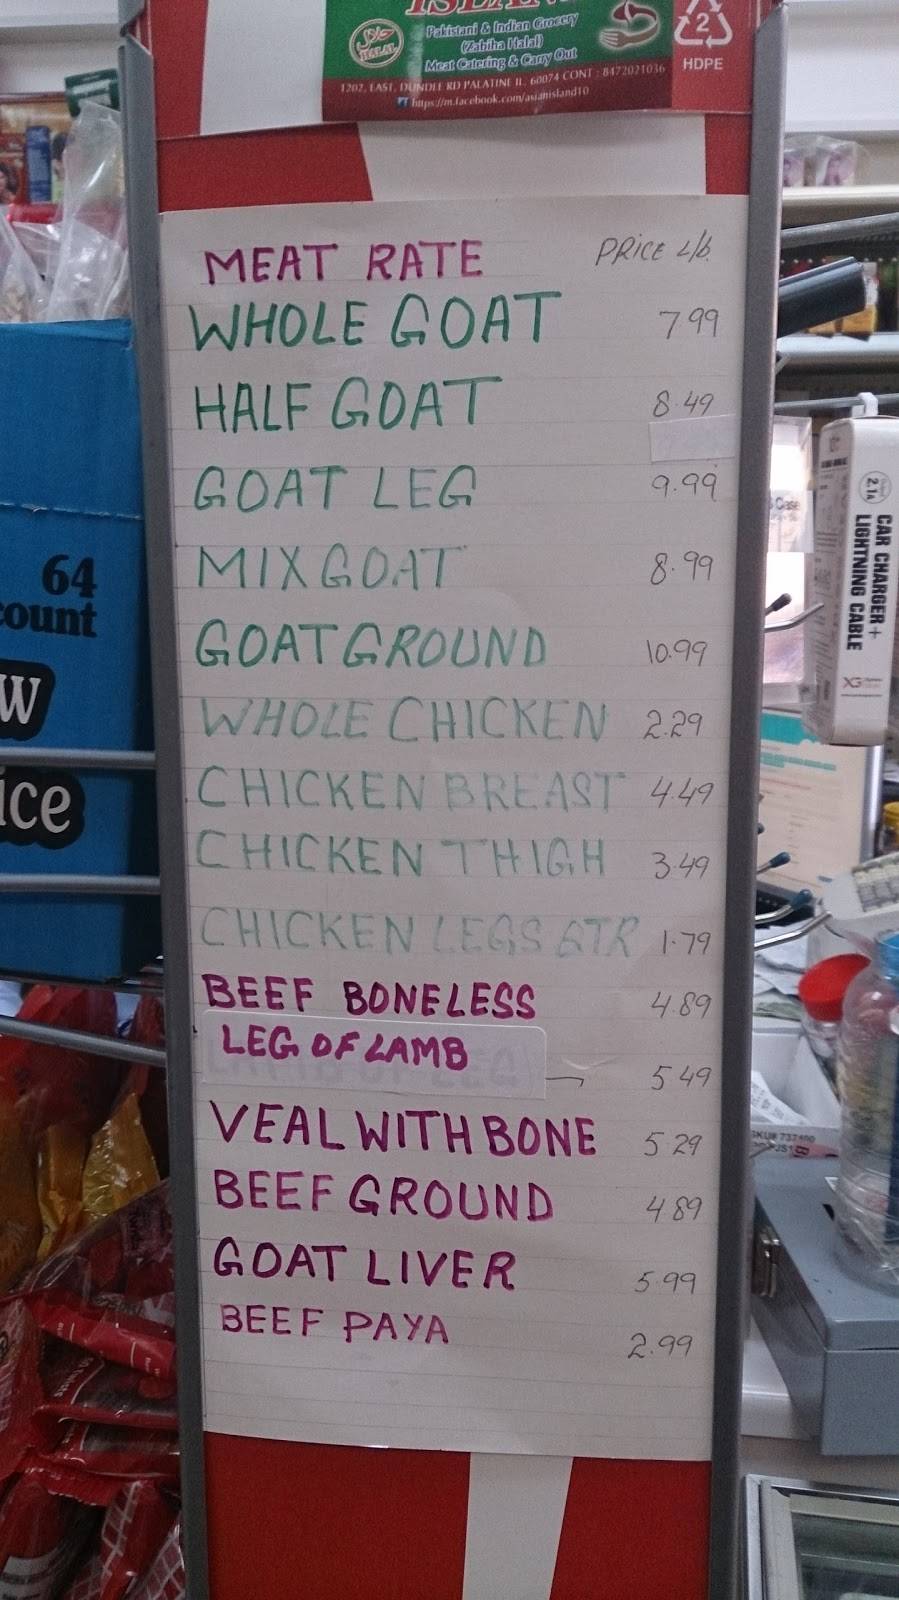 Pakistani & Indian Grocery
(Zabiha Halal)
Meat Catering & Carry Out
حلال
HALAL
1202, EAST, DUNDEE RD PALATINE IL. 60074 CONT : 8472021036
https://m.facebook.com/asianisland10
2
HDPE
MEAT RATE PRICE L/b.
WHOLE GOAT 7 99
HALF GOAT 8.49
GOAT LEG 9.99
MIX GOAT 8.99
GOAT GROUND 10.99
WHOLE CHICKEN 2.29
CHICKEN BREAST 4.49
CHICKEN THIGH 3.49
CHICKEN LEGS QTR 1.79
BEEF BONELESS 4.89
LEG OF LAMB 5 49
VEAL WITH BONE 5 29
BEEF GROUND 4 89
GOAT LIVER 5.99
BEEF PAYA 2.99
64
count
w
ice
2.1A
CAR CHARGER+
LIGHTNING CABLE
Case